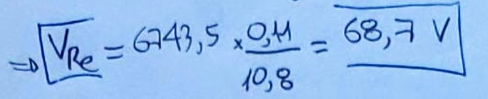 ⇒ V_Re = 6743,5 × 0,11 / 10,8 = 68,7 V